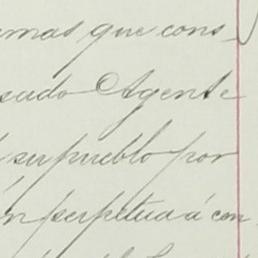 mas que cons-
sado Agente
su pueblo por
ón perpetua á con